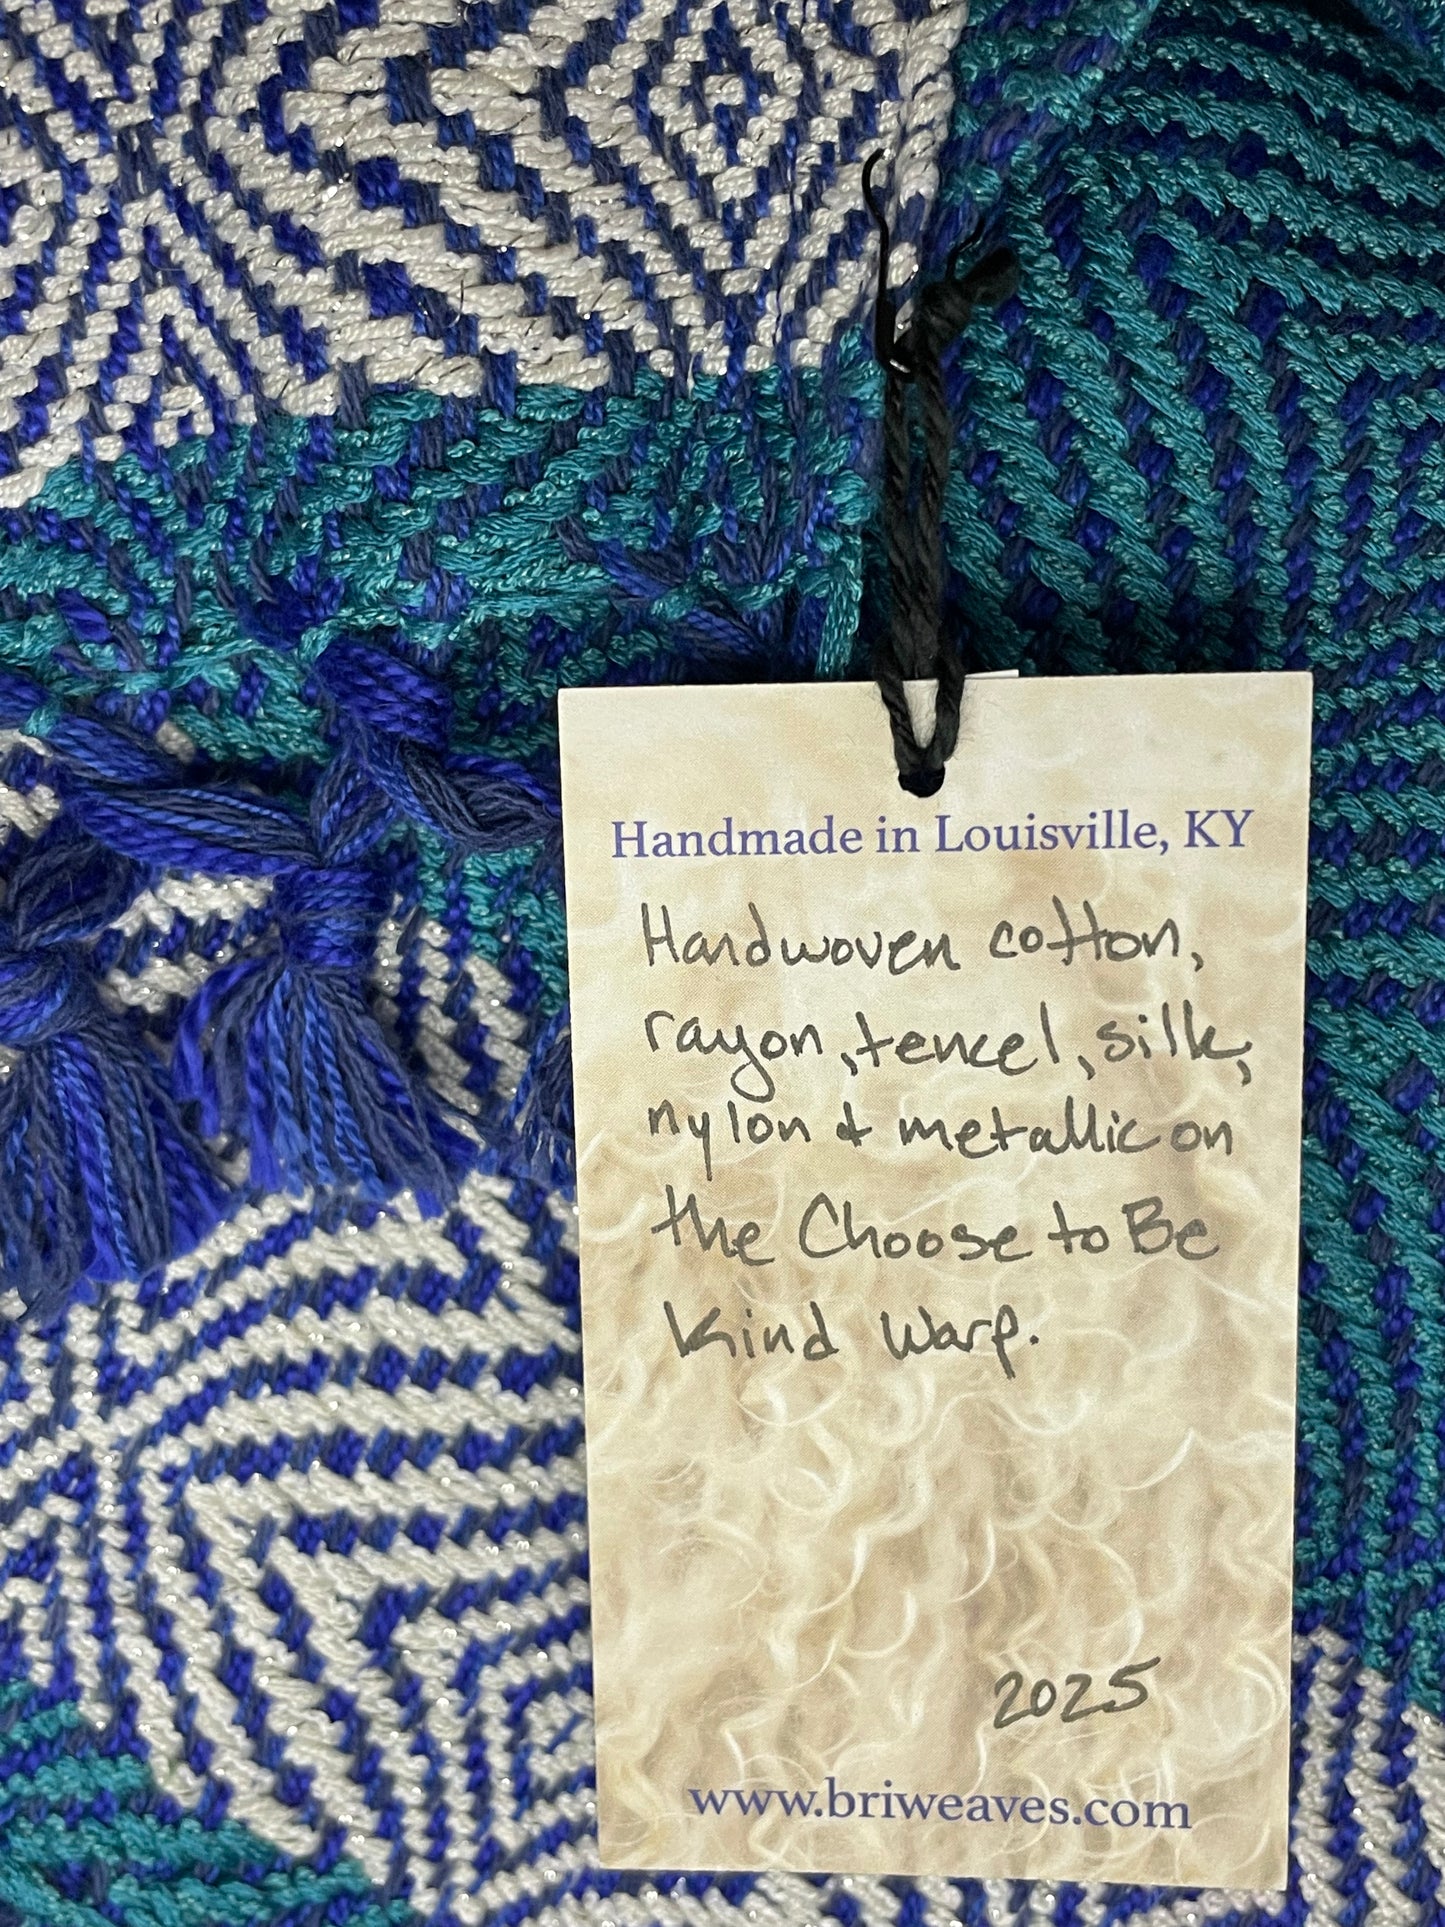 Handmade in Louisville, KY
Handwoven cotton,
rayon, tencel, silk,
nylon & metallic on
the Choose to Be
Kind Warp.
2025
www.briweaves.com